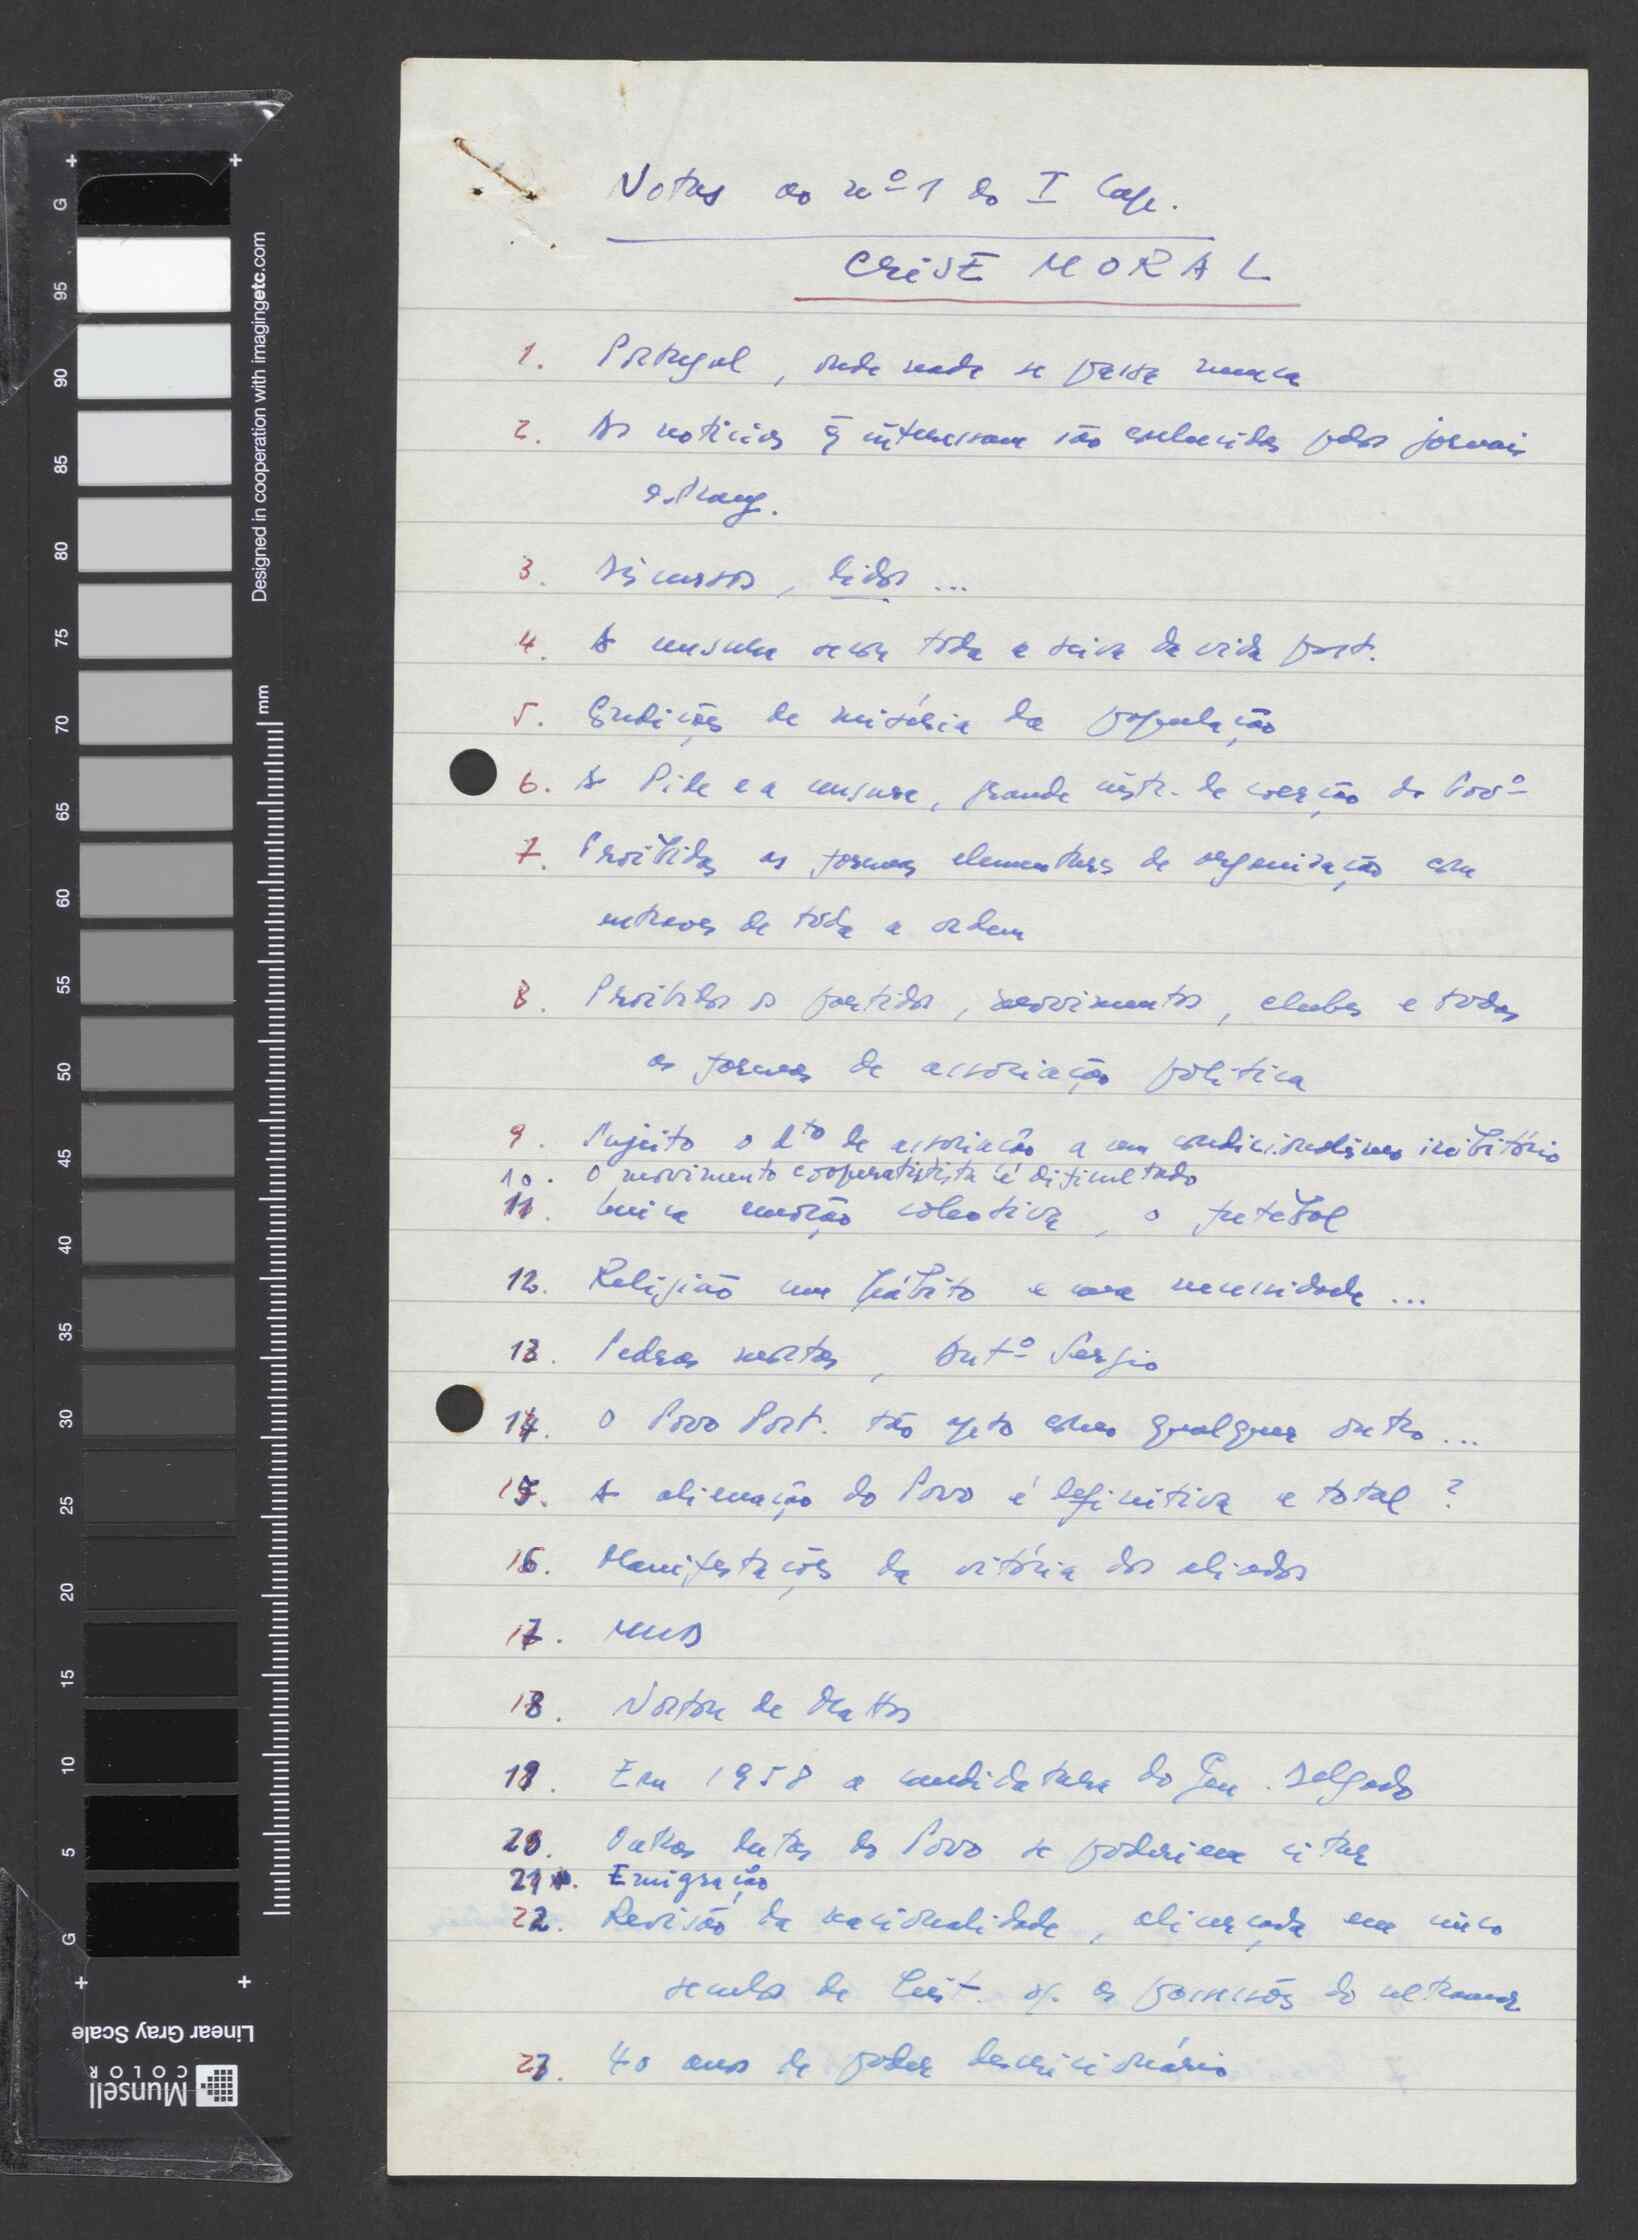 Notas ao nº 1 do I Cap.
CRISE MORAL
1. Portugal, onde nada se passa nunca
2. As noticias q̃ interessam são conhecidas pelos jornais
estrang.
3. Discursos, lidos ...
4. A censura secou toda a seiva da vida port.
5. Condições de miséria da população
6. A Pide e a censura, grande instr. de coerção do Govº
7. Proibidas as formas elementares de organização com
entraves de toda a ordem
8. Proibidos os partidos, movimentos, clubes e todas
as formas de associação política
9. Sujeito o dto de associação a um condicionalismo inibitório
10. O movimento cooperatista é dificultado
11. Única emoção colectiva, o futebol
12. Religião um hábito e uma necessidade ...
13. Pedras mortas, Antº Sergio
14. O Povo Port. tão apto como qualquer outro ...
15. A alienação do Povo é definitiva e total ?
16. Manifestações da vitória dos aliados
17. MUD
18. Norton de Mattos
19. Em 1958 a candidatura do Gen. Delgado
20. Outras lutas do Povo se poderiam citar
21. Emigração
22. Revisão da nacionalidade, alicerçada em cinco
seculos de hist. as possessões do ultramar
23. 40 anos de poder descricionário
Designed in cooperation with imagingetc.com
mm
G 95 90 85 80 75 70 65 60 55 50 45 40 35 30 25 20 15 10 5 G
Linear Gray Scale
Munsell
COLOR